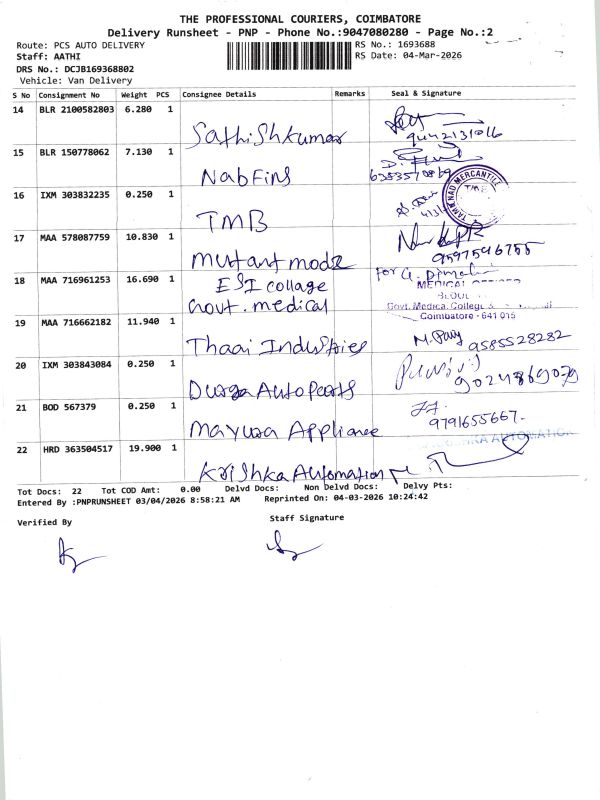 THE PROFESSIONAL COURIERS, COIMBATORE
Delivery Runsheet - PNP - Phone No.:9047080280 - Page No.:2
Route: PCS AUTO DELIVERY
RS No.: 1693688
Staff: AATHI
RS Date: 04-Mar-2026
DRS No.: DCJB169368802
Vehicle: Van Delivery
S No Consignment No Weight PCS Consignee Details Remarks Seal & Signature
14 BLR 2100582803 6.280 1
Sathishkumar 9442131016
15 BLR 150778062 7.130 1
NabFins
16 IXM 303832235 0.250 1
TMB
TAMILNAD MERCANTILE
17 MAA 578087759 10.830 1
mutant mode 9597596755
18 MAA 716961253 16.690 1
ESI collage
Govt. medical
for
Govt. Medical College
Coimbatore - 641 015
19 MAA 716662182 11.940 1
Thaai Industries 9585528282
20 IXM 303843084 0.250 1
Durga Autoparts 9024869079
21 BOD 567379 0.250 1
Mayura Appliance 9791655667.
22 HRD 363504517 19.900 1
Krishka Automation
Tot Docs: 22 Tot COD Amt: 0.00 Delvd Docs: Non Delvd Docs: Delvy Pts:
Entered By :PNPRUNSHEET 03/04/2026 8:58:21 AM Reprinted On: 04-03-2026 10:24:42
Verified By Staff Signature